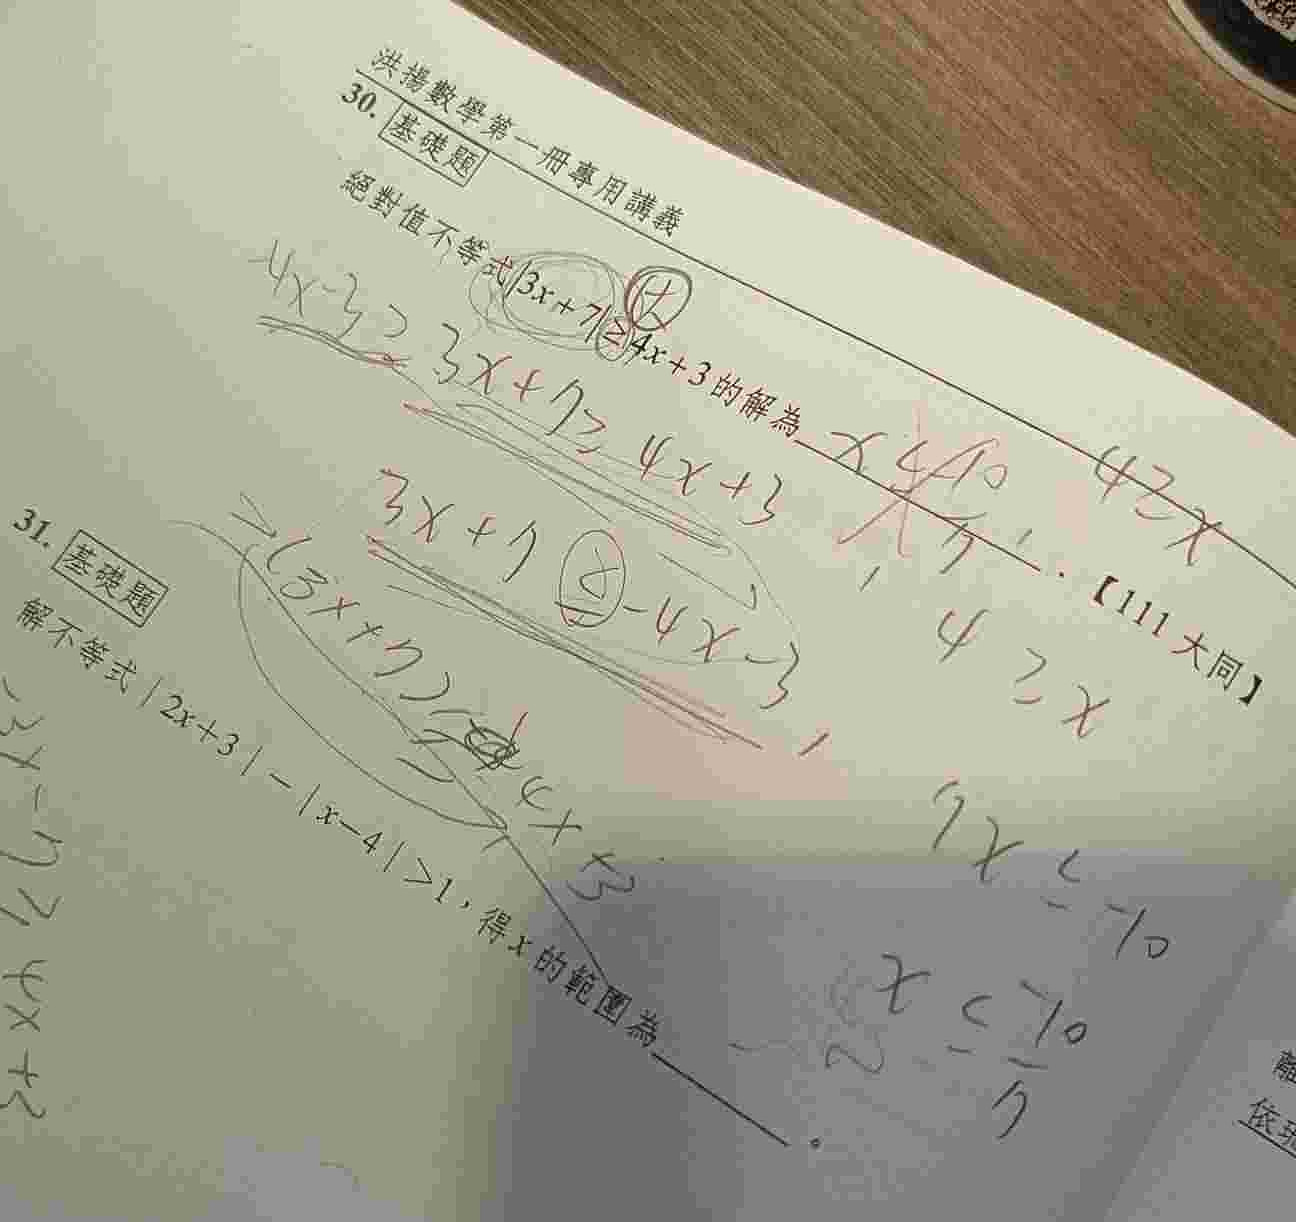 洪揚數學第一冊專用講義
30. 基礎題
絕對值不等式|3x+7|≥4x+3的解為 。【111大同】
4≥x
4x-3≥3x+7≥4x+3
3x+7≤-4x-3
4≥x
7x≤-10
x≤-10/7
(3x+7)
4x+3
31. 基礎題
解不等式|2x+3|-|x-4|>1,得x的範圍為 。
-3x-7≥4x+3
離
依